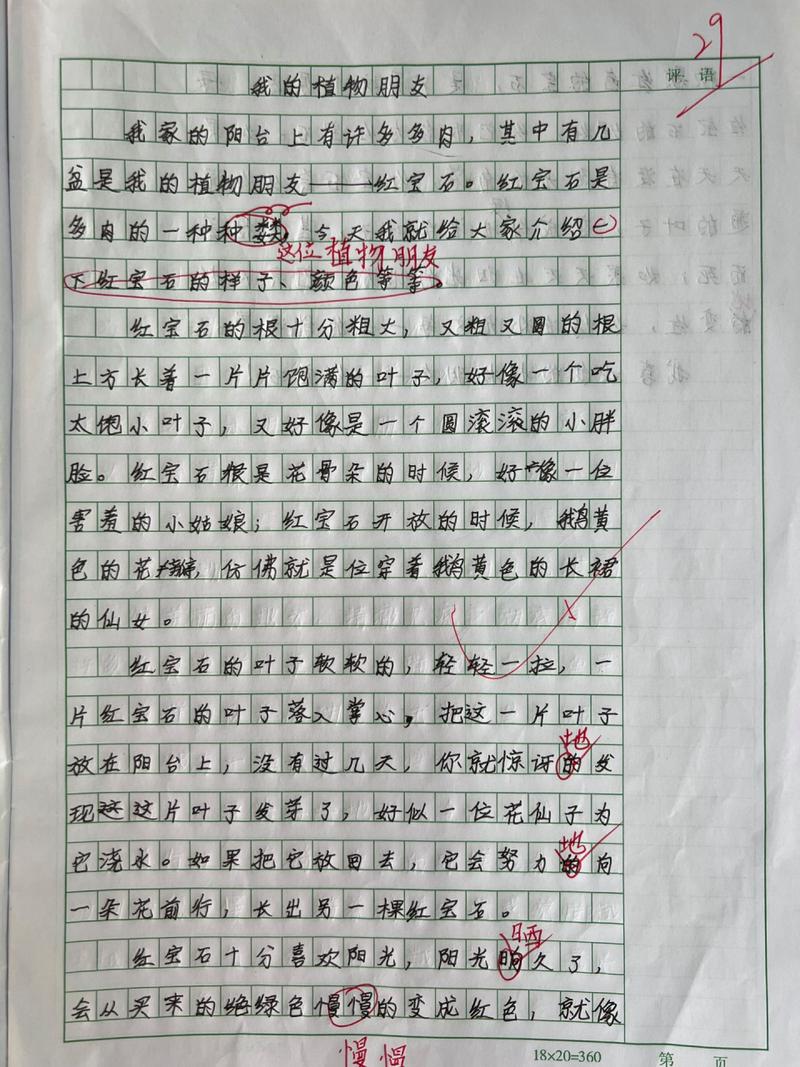 29
评语
我的植物朋友
我家的阳台上有许多多肉,其中有几
盆是我的植物朋友——红宝石。红宝石是
多肉的一种种类,今天我就给大家介绍一
这位植物朋友
下红宝石的样子、颜色等等。
红宝石的根十分粗大,又粗又圆的根
上方长着一片片饱满的叶子,好像一个吃
太饱小叶子,又好像是一个圆滚滚的小胖
脸。红宝石很是花骨朵的时候,好像一位
害羞的小姑娘;红宝石开放的时候,鹅黄
色的花瓣,仿佛就是位穿着鹅黄色的长裙
的仙女。
红宝石的叶子软软的,轻轻一拉,一
片红宝石的叶子落入掌心,把这一片叶子
地
放在阳台上,没有过几天,你就惊讶的发
现这这片叶子发芽了,好似一位花仙子为
地
它浇水。如果把它放回去,它会努力的向
一朵花前行,长出另一棵红宝石。
晒
红宝石十分喜欢阳光,阳光久了,
会从买来的绝绿色慢慢的变成红色,就像
慢慢
18×20=360 第 页